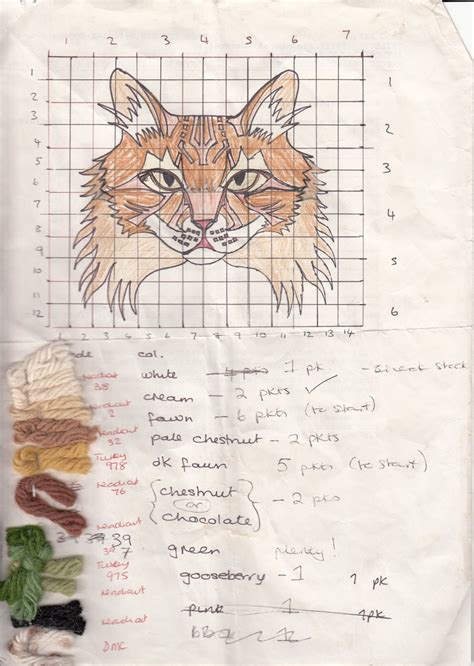 1 2 3 4 5 6 7
1 2 3 4 5 6 7 8 9 10 11 12
1 2 3 4 5 6
1 2 3 4 5 6 7 8 9 10 11 12 13 14
col.
38 white 1 pk
2 cream - 2 pkts ✓
fawn - 6 pkts (to start)
32 pale chestnut - 2 pkts
Turkey 978 dk fawn 5 pkts (to start)
Readicut 76 { chestnut or chocolate } - 2 pks
Readicut 39
7 green plenty!
Turkey 975 gooseberry - 1 1 pk
Readicut
pink 1 1pk
DMC